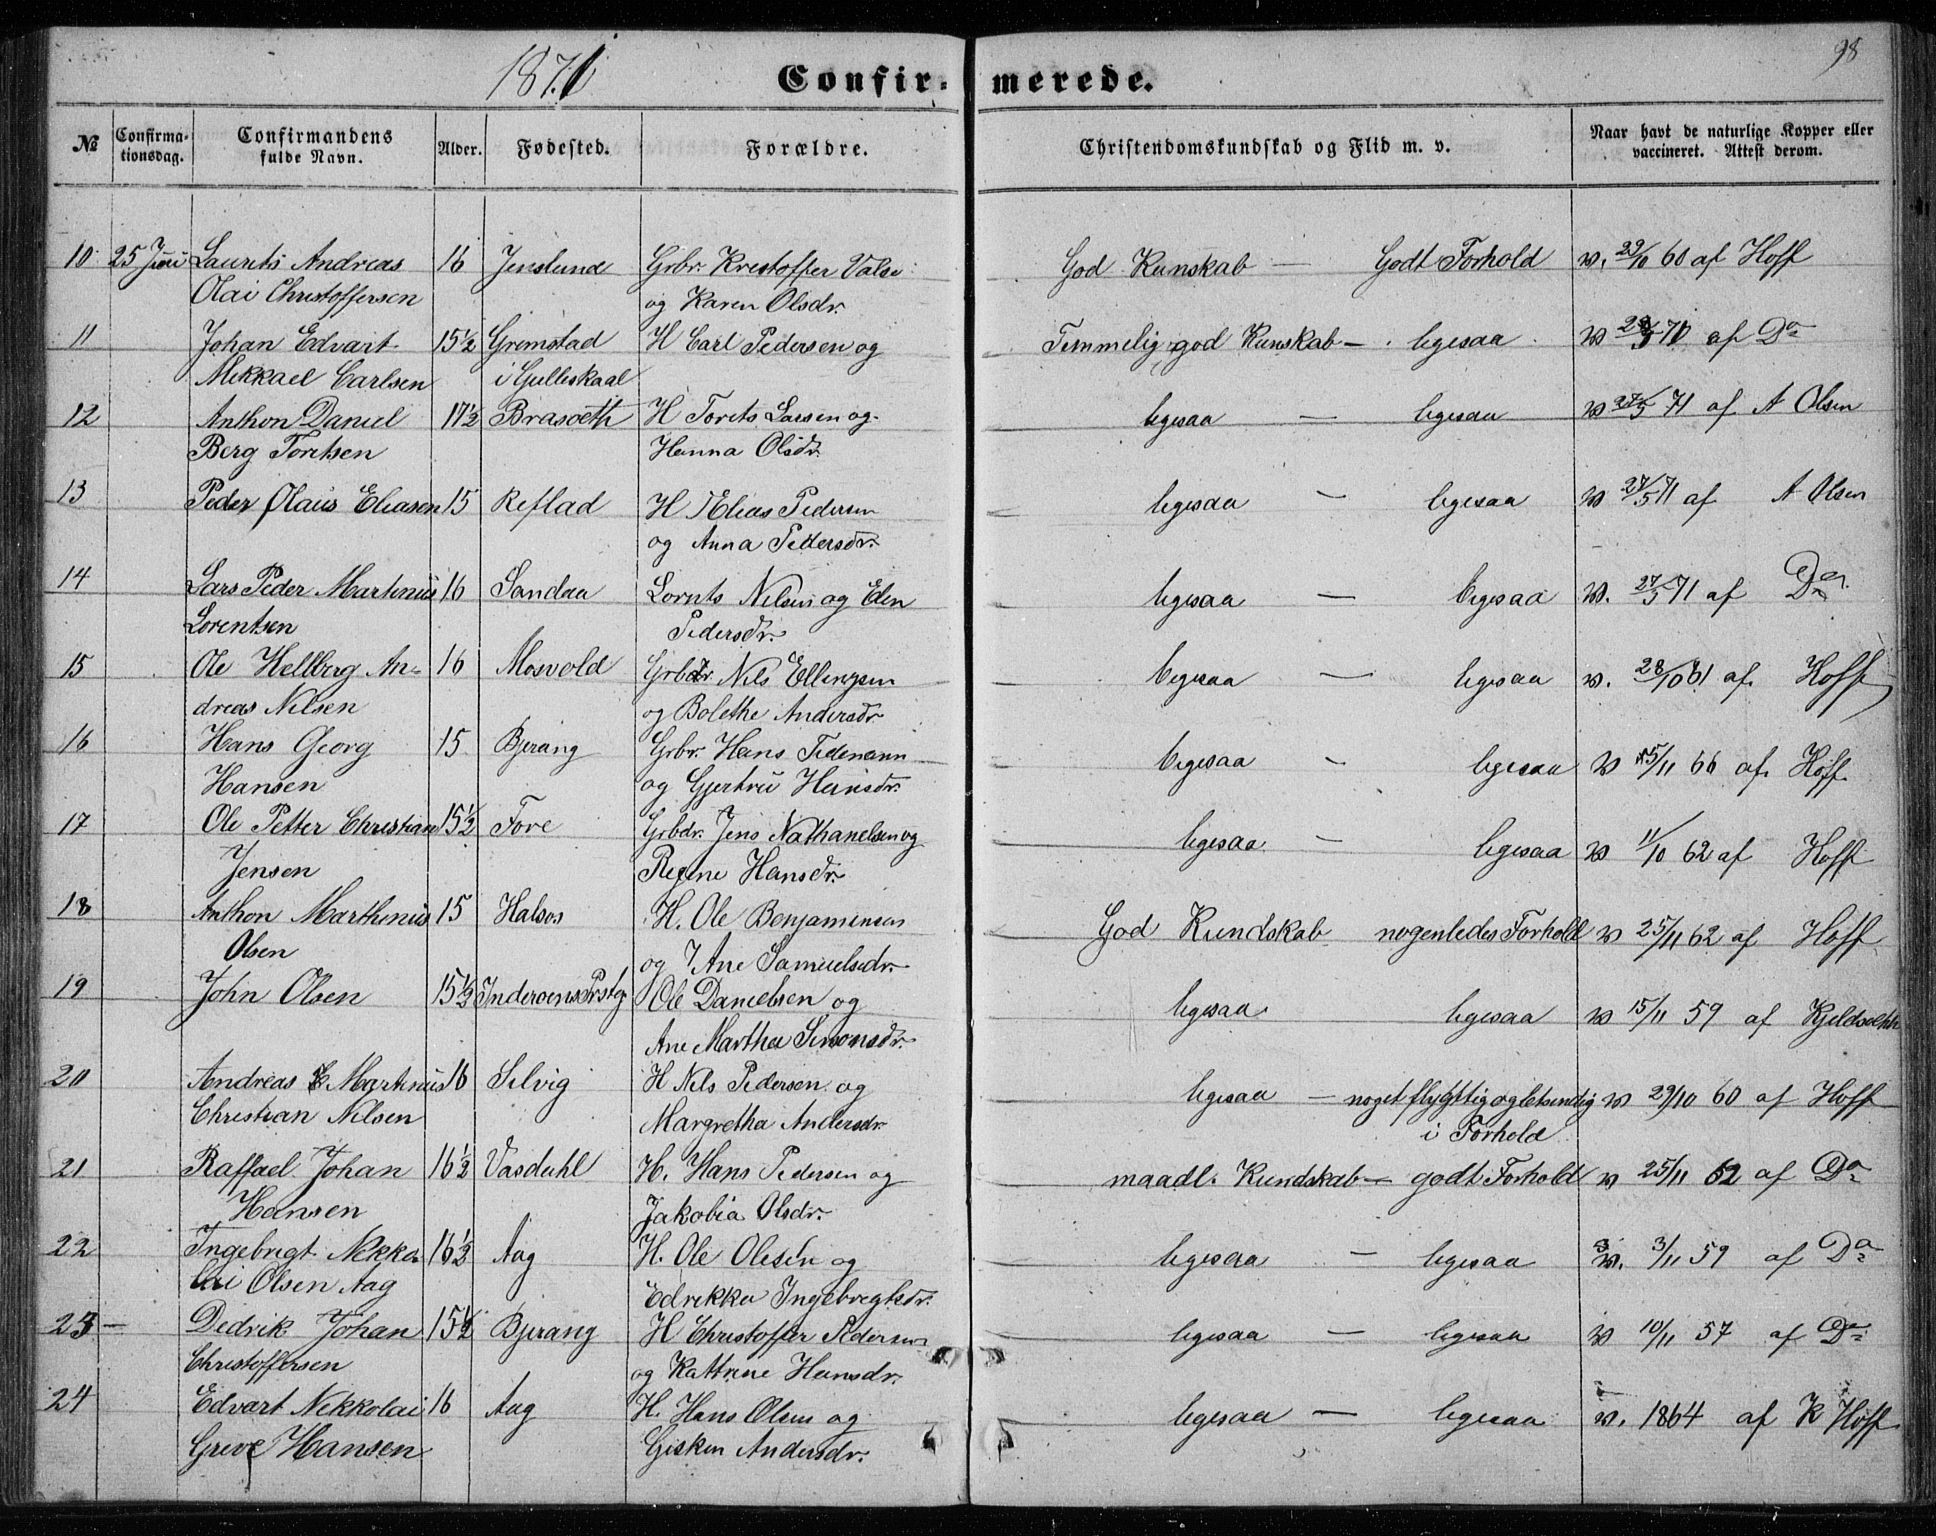 1871 Confirmerede. 98
№ Confirmationsdag. Confirmandens fulde Navn. Alder. Fødested. Forældre. Christendomskundskab og Flid m. v. Naar havt de naturlige Kopper eller vaccineret. Attest derom.
10 25 Juni Laurits Andreas 16 Jenslund Grbr. Krestoffer Valse God Kunskab — Godt Forhold v. 29/10 60 af Hoff
Olai Christoffersen og Karen Olsdr.
11 Johan Edvart 15½ Gremstad H Carl Pedersen og Temmelig god Kunskab — ligesaa v 71 af Do
Mikkael Carlsen i Gilleskaal
12 Anthon Daniel 17½ Brasæth H Torits Larsen og ligesaa — ligesaa v 27/5 71 af A Olsen
Berg Toritsen Hanna Olsdr.
13 Peder Olaus Eliasen 15 Reflad H Elias Pedersen ligesaa — ligesaa v 27/5 71 af A Olsen
og Anna Pedersdr.
14 Lars Peder Martinus 16 Sandaa Lornts Nilsen og Elen ligesaa — ligesaa v. 27/5 71 af Do
Lorentsen Pedersdr.
15 Ole Hellberg An- 16 Mosvold Grbdr Nils Ellingsen ligesaa — ligesaa v. 28/10 61 af Hoff
dreas Nilsen og Bolethe Andersdr
16 Hans Georg 15 Bjerang Grbr. Hans Tidemann ligesaa — ligesaa v 15/11 66 af Hoff
Hansen og Gjertru Hansdr.
17 Ole Petter Christian 15½ Fore Grbdr. Jens Nathanelsen og ligesaa — ligesaa v 11/10 62 af Hoff
Jensen Regine Hansdr.
18 Anthon Marthinus 15 Halsos H. Ole Benjaminsen God Kundskab nogenledes Forhold v 25/11 62 af Hoff
Olsen og Ane Samuelsdr.
19 John Olsen 15½ Inderøens Prstg Ole Danielsen og ligesaa ligesaa v 15/11 59 af
Ane Martha Simonsdr.
20 Andreas Martinus 16 Selvig H Nils Pedersen og ligesaa — noget flygttig og letsindig v 29/10 60 af Hoff
Christian Nilsen Margretha Andersdr. i Forhold
21 Raffael Johan 16½ Vasdahl H. Hans Pedersen og maadl. Kundskab — godt Forhold v 25/11 62 af Do
Hansen Jakobia Olsdr.
22 Ingebrigt Nekko- 16½ Aag H. Ole Olesen og ligesaa — ligesaa v. 3/11 59 af Do
lai Olsen Aag Edrikka Ingebregtsdr.
23 — Dedrik Johan 15½ Bjerang H Christoffer Pedersen ligesaa — ligesaa v 10/11 57 af Do
Christoffersen og Kattrine Hansdr.
24 Edvart Nekkolai 16 Aag H. Hans Olsen og ligesaa — ligesaa v. 1864 af K Hoff
Greve Hansen Gisken Andersdr.